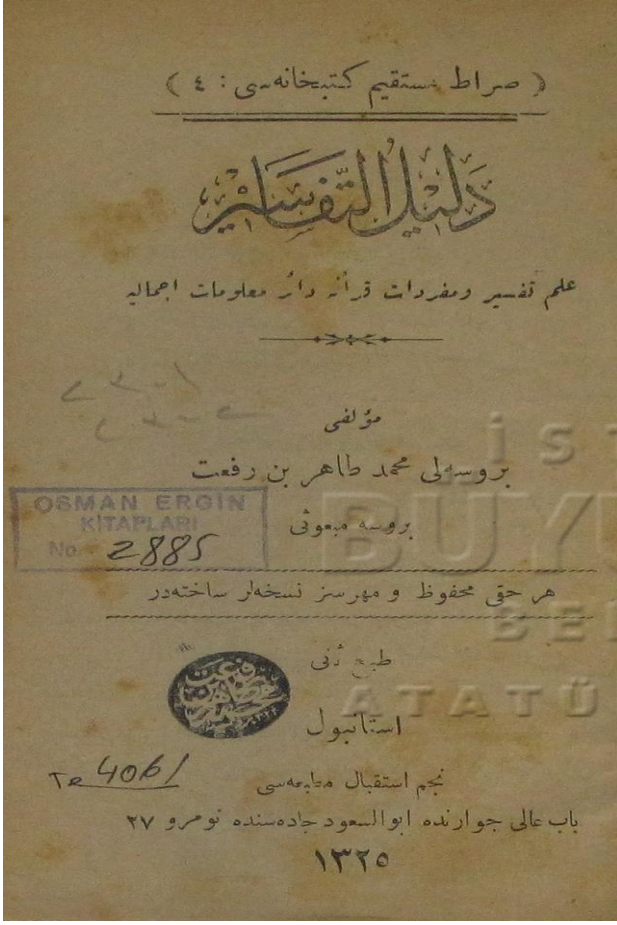 ﴿ صراط مستقيم كتبخانه‌سى : ٤ ﴾
دَلِيلُ التَّفَاسِيرِ
علم تفسير و مفردات قرآنه دائر معلومات اجماليه
مؤلفى
بروسه‌لى محمد طاهر بن رفعت
بروسه مبعوثى
OSMAN ERGİN
KİTAPLARI
No 2885
هر حقى محفوظ و مهرسز نسخه‌لر ساخته‌در
طبع ثانى
استانبول
نجم استقبال مطبعه‌سى
Te 4061
باب عالى جوارنده ابوالسعود جاده‌سنده نومرو ٢٧
١٣٢٥
İST
BÜYÜ
BEL
ATATÜ